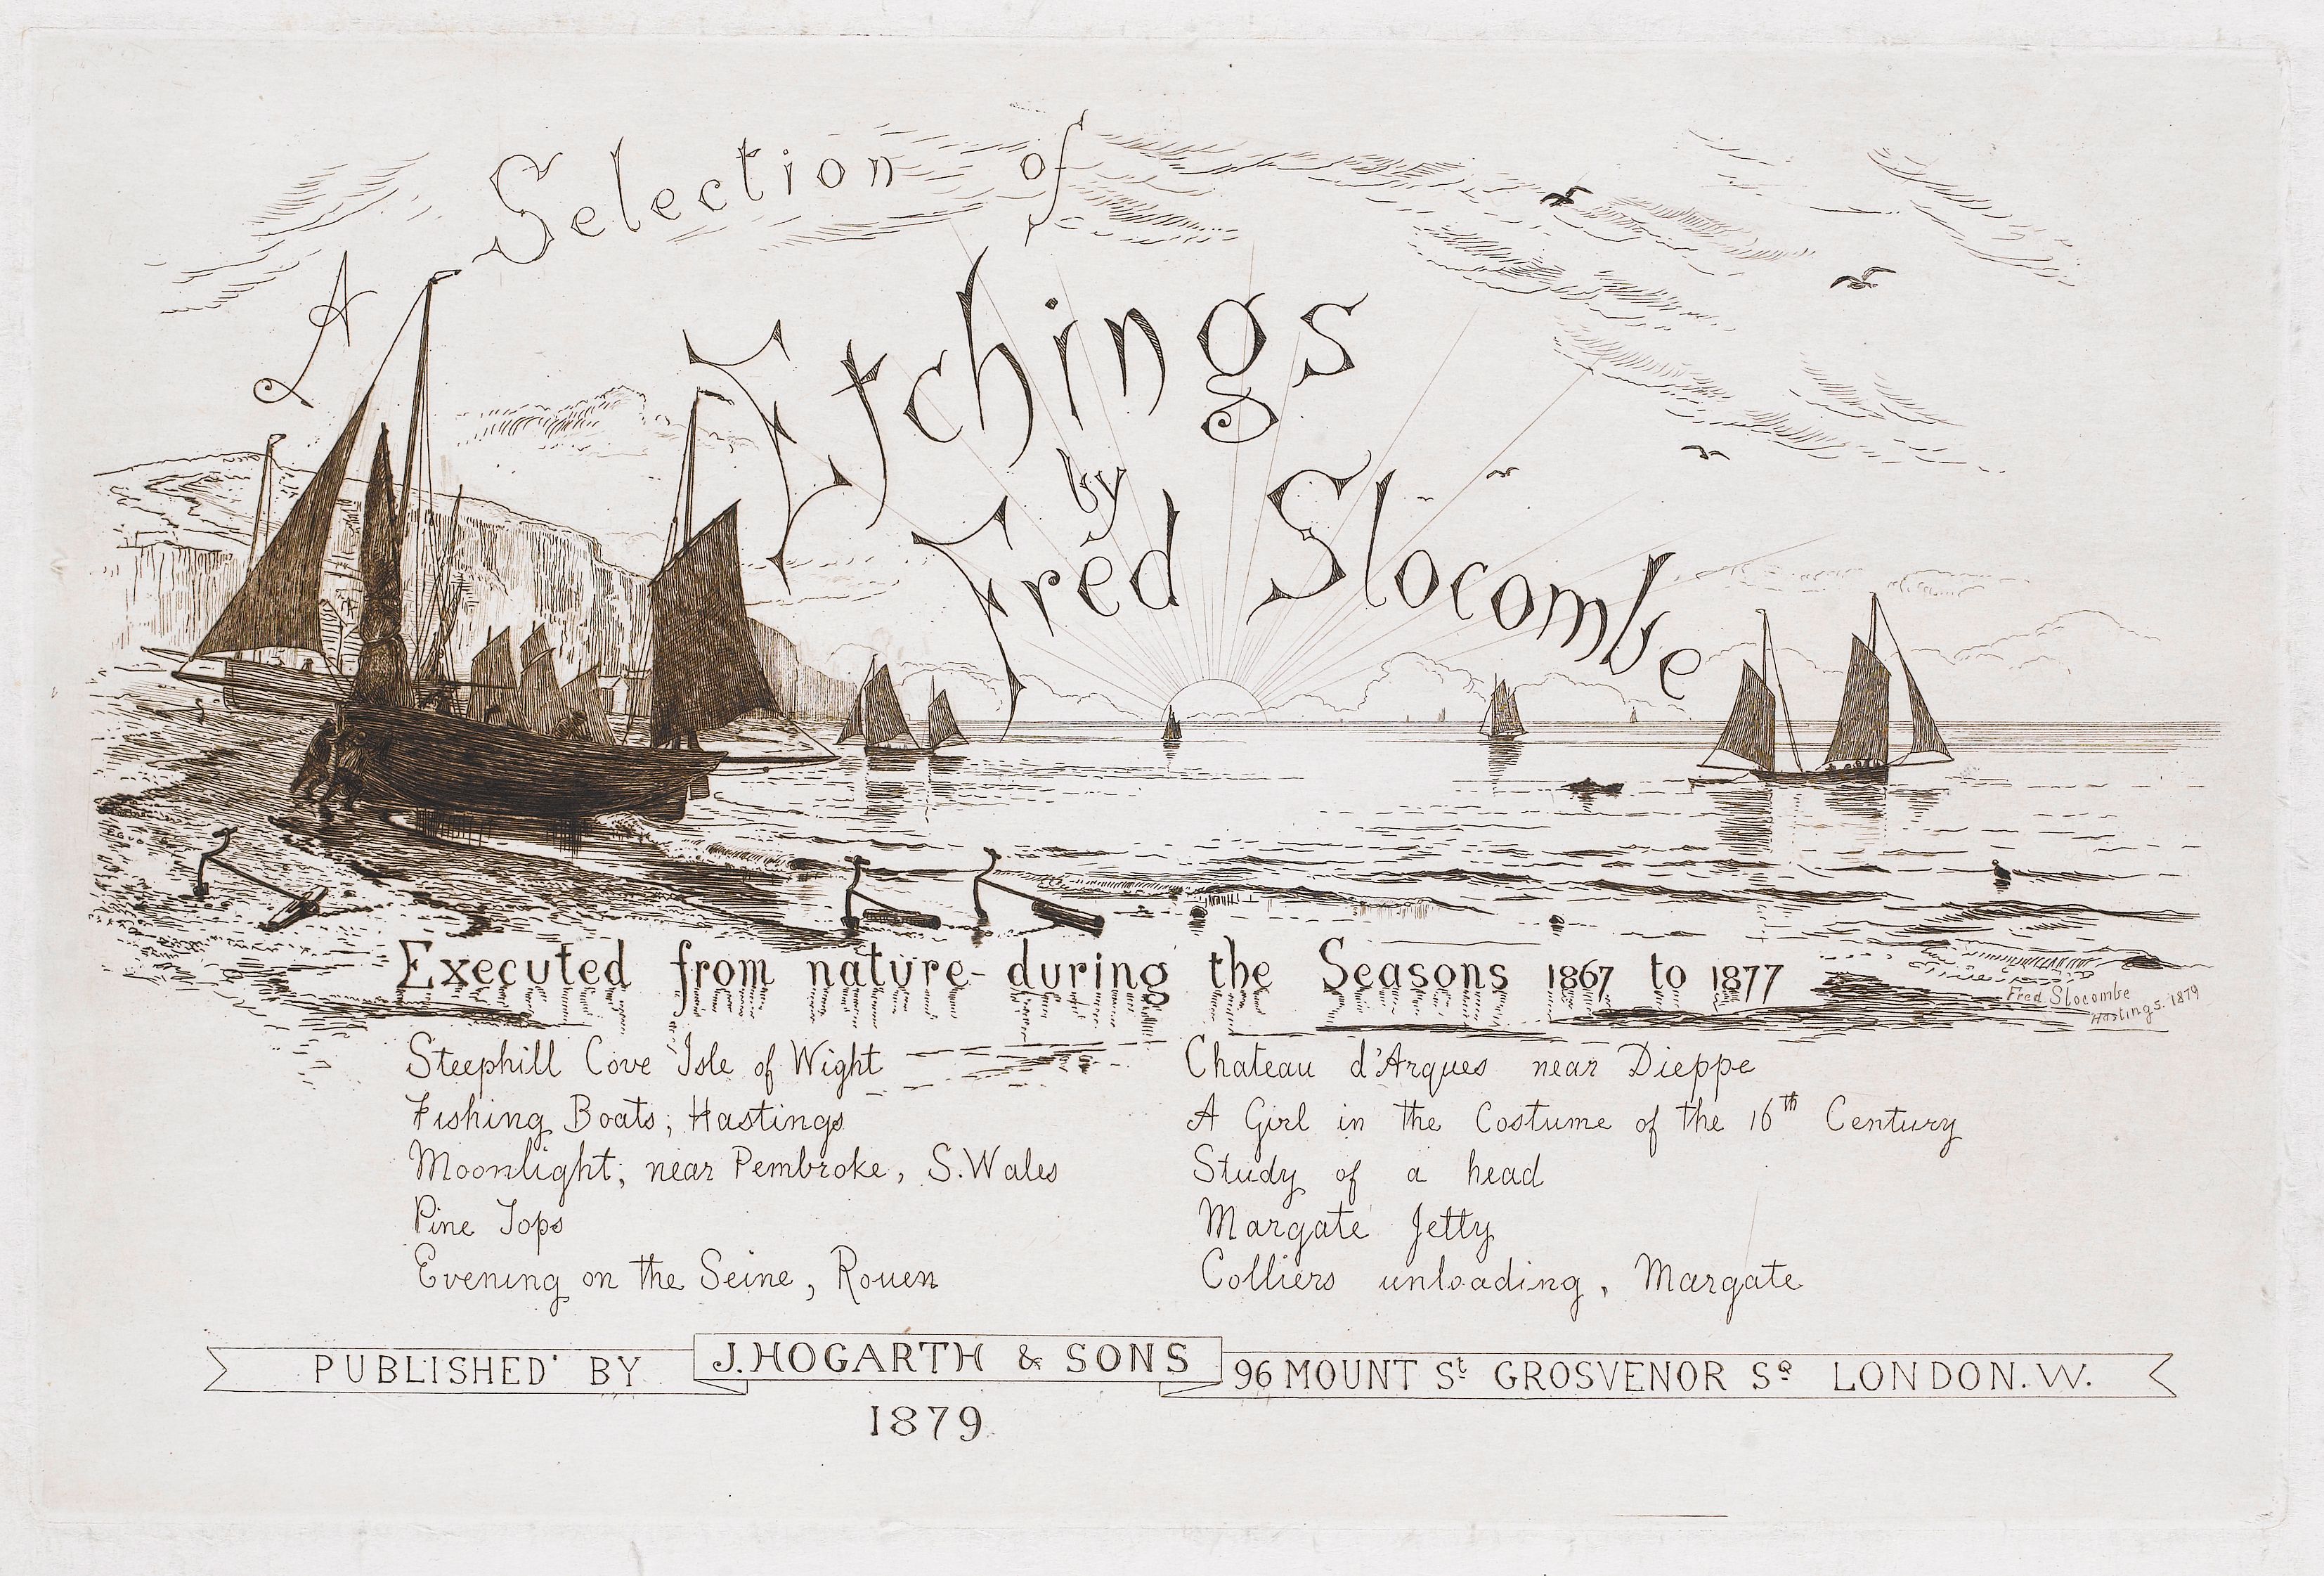 A Selection of
Etchings
by
Fred Slocombe
Executed from nature - during the Seasons 1867 to 1877
Fred Slocombe
Hastings. 1879
Steephill Cove Isle of Wight
Fishing Boats; Hastings
Moonlight, near Pembroke, S. Wales
Pine Tops
Evening on the Seine, Rouen
Chateau d'Arques near Dieppe
A Girl in the Costume of the 16th Century
Study of a head
Margate Jetty
Colliers unloading, Margate
PUBLISHED BY J. HOGARTH & SONS 96 MOUNT St GROSVENOR Sq LONDON. W.
1879